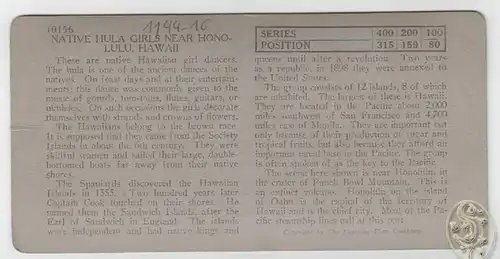 10156
1144-16
NATIVE HULA GIRLS NEAR HONO-
LULU, HAWAII
These are native Hawaiian girl dancers.
The hula is one of the ancient dances of the
natives. On feast days and at their entertain-
ments, this dance was commonly given to the
music of gourds, tom-toms, flutes, guitars, or
ukuleles. On such occasions the girls decorate
themselves with strands and crowns of flowers.
The Hawaiians belong to the brown race.
It is supposed that they came from the Society
Islands in about the 6th century. They were
skilled seamen and sailed their large, double-
bottomed boats far away from their native
shores.
The Spaniards discovered the Hawaiian
Islands in 1555. Two hundred years later
Captain Cook touched on their shores. He
named them the Sandwich Islands, after the
Earl of Sandwich in England. The islands
were independent and had native kings and
SERIES 400 200 100
POSITION 315 159 80
queens until after a revolution. Two years
as a republic, in 1898 they were annexed to
the United States.
The group consists of 12 islands, 8 of which
are inhabited. The largest of these is Hawaii.
They are located in the Pacific about 2,000
miles southwest of San Francisco and 4,700
miles east of Manila. They are important not
only because of their production of sugar and
tropical fruits, but also because they afford an
important naval base to the Pacific. The group
is often spoken of as the key to the Pacific.
The scene here shown is near Honolulu, in
the crater of Punch Bowl Mountain. This is
an extinct volcano. Honolulu on the island
of Oahu is the capital of the territory of
Hawaii and is the chief city. Most of the Pa-
cific steamship lines call at this port.
Copyright by The Keystone View Company